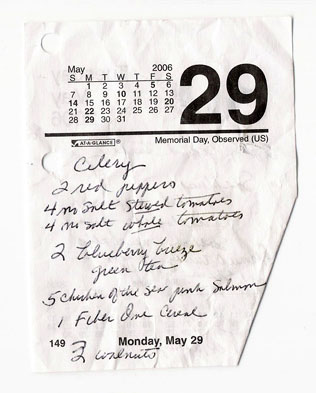 May 2006
S M T W T F S
1 2 3 4 5 6
7 8 9 10 11 12 13
14 15 16 17 18 19 20
21 22 23 24 25 26 27
28 29 30 31
29
AT-A-GLANCE®
Memorial Day, Observed (US)
Celery
2 red peppers
4 no salt stewed tomatoes
4 no salt whole tomatoes
2 blueberry breeze
green tea
5 Chicken of the Sea pink Salmon
1 Fiber One Cereal
149 Monday, May 29
2 walnuts